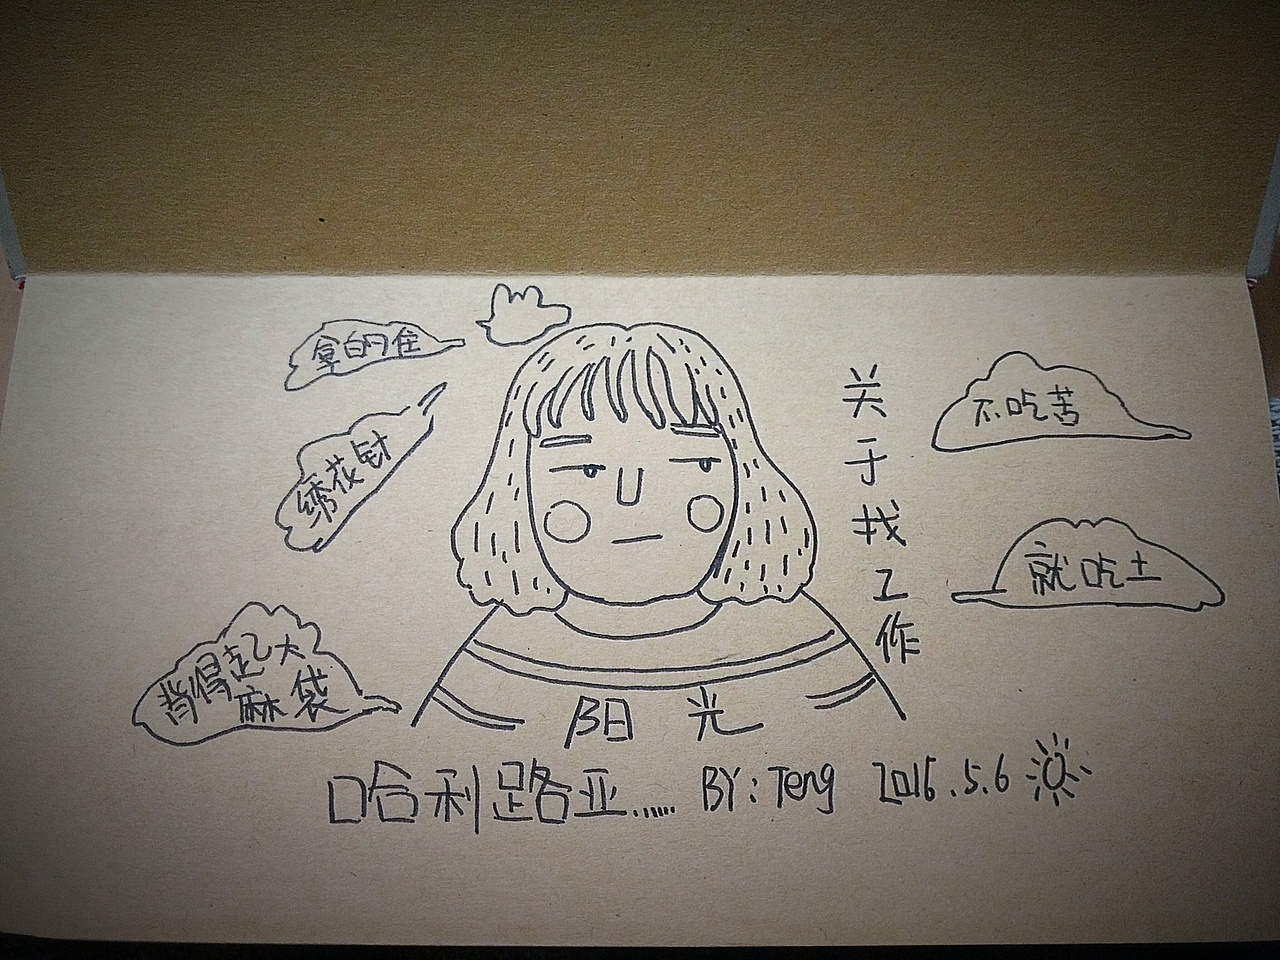 拿的住
绣花针
背得起大
麻袋
关于找工作
不吃苦
就吃土
阳光
哈利路亚...... BY: Teng 2016.5.6